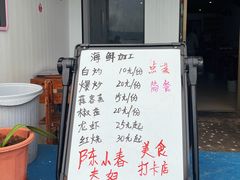 海鲜加工
白灼 10元/份 点菜
爆炒 20元/份 简餐
蒜蓉蒸 15元/份
椒盐 20元/份
龙虾 25元起
红烧 30元起
陈小春 美食
打卡店